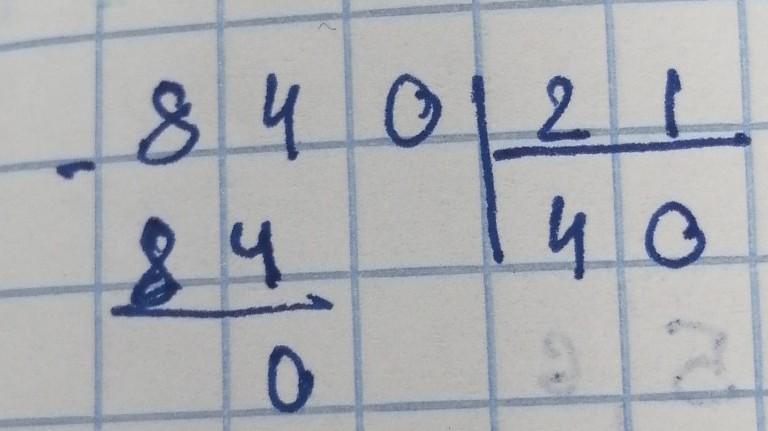 - 840 | 21
84 | 40
0